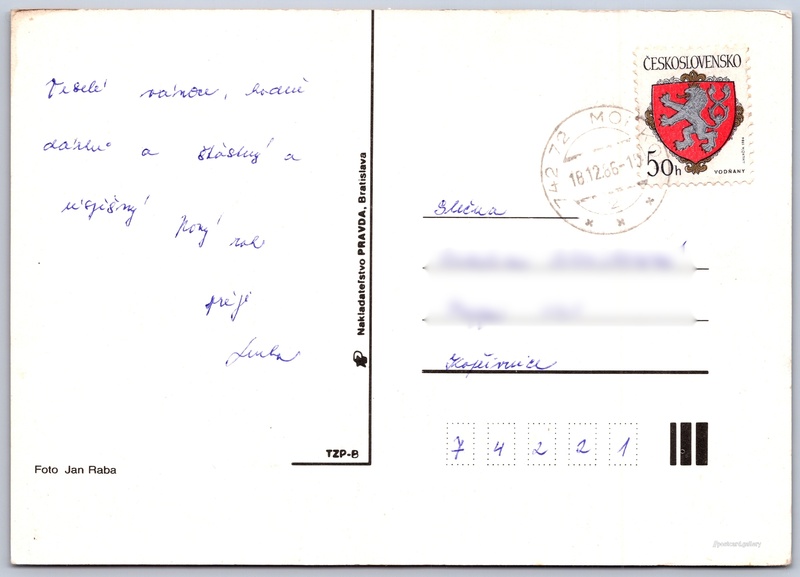 Veselé vánoce, hodně
dárků a šťastný a
úspěšný
Nový rok
přeje
Lenka
Foto Jan Raba
TZP-B
Nakladateľstvo PRAVDA, Bratislava
ČESKOSLOVENSKO
50h
VODŇANY
742 72 MO
18.12.86-1
2
Slečna
Kopřivnice
7 4 2 2 1
//postcard.gallery